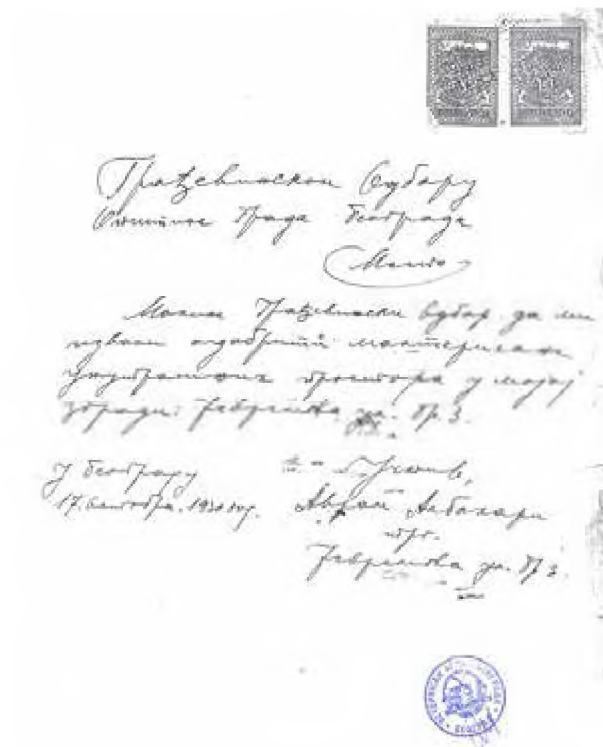 Грађевинском Одбору
Општине Града Београда
Место
Молим Грађевински Одбор да ми
изволи одобрити
простора у мојој
згради: Јевремова ул. бр. 3.
У Београду
17. октобра. 1930 год.
Аврам Албахари
Јевремова ул. бр 3.